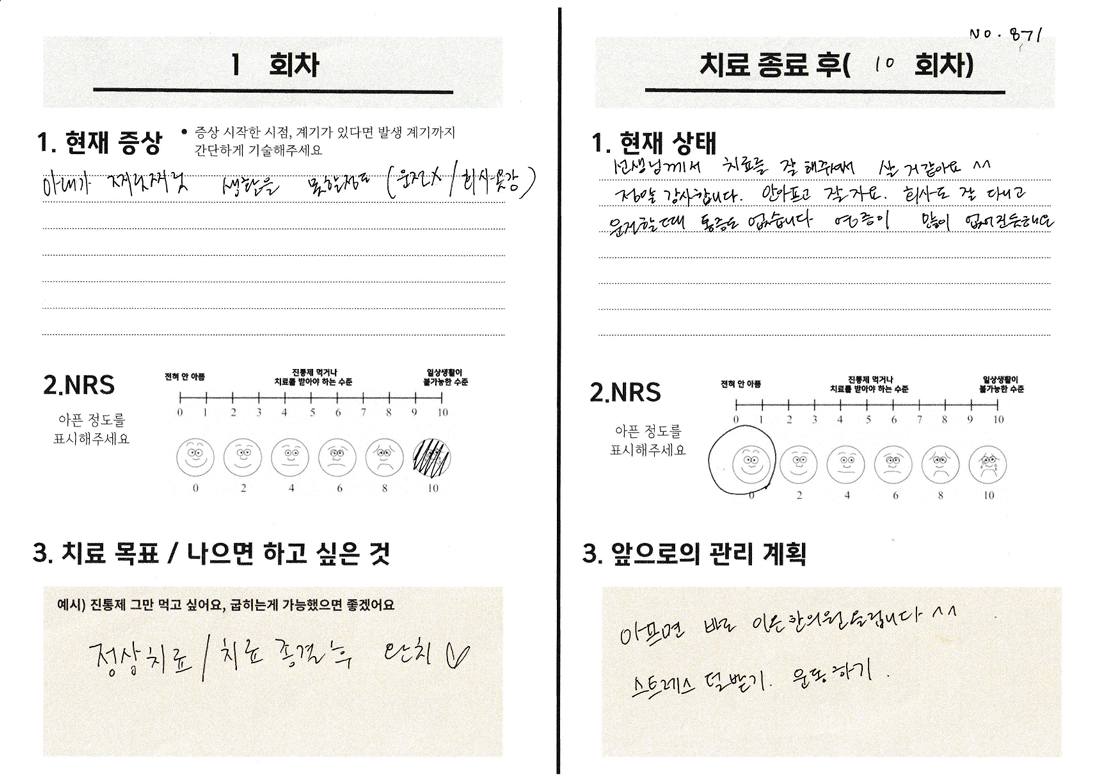 1 회차
1. 현재 증상
• 증상 시작한 시점, 계기가 있다면 발생 계기까지
간단하게 기술해주세요
찌릿찌릿 생활을 못할정도 (운전X / 회사못감)
2.NRS
아픈 정도를
표시해주세요
전혀 안 아픔
진통제 먹거나
치료를 받아야 하는 수준
일상생활이
불가능한 수준
0 1 2 3 4 5 6 7 8 9 10
0 2 4 6 8 10
3. 치료 목표 / 나으면 하고 싶은 것
예시) 진통제 그만 먹고 싶어요, 굽히는게 가능했으면 좋겠어요
정상치료 / 치료 종결후 완치 ♡
NO. 871
치료 종료 후( 10 회차)
1. 현재 상태
선생님께서 치료를 잘 해줘서 살 거같아요 ^^
정말 감사합니다. 안아프고 잘자요. 회사도 잘 다니고
운전할때 통증도 없습니다 염증이 많이 없어진듯해요
2.NRS
아픈 정도를
표시해주세요
전혀 안 아픔
진통제 먹거나
치료를 받아야 하는 수준
일상생활이
불가능한 수준
0 1 2 3 4 5 6 7 8 9 10
0 2 4 6 8 10
3. 앞으로의 관리 계획
아프면 바로 이은한의원 ^^
스트레스 덜받기. 운동하기.